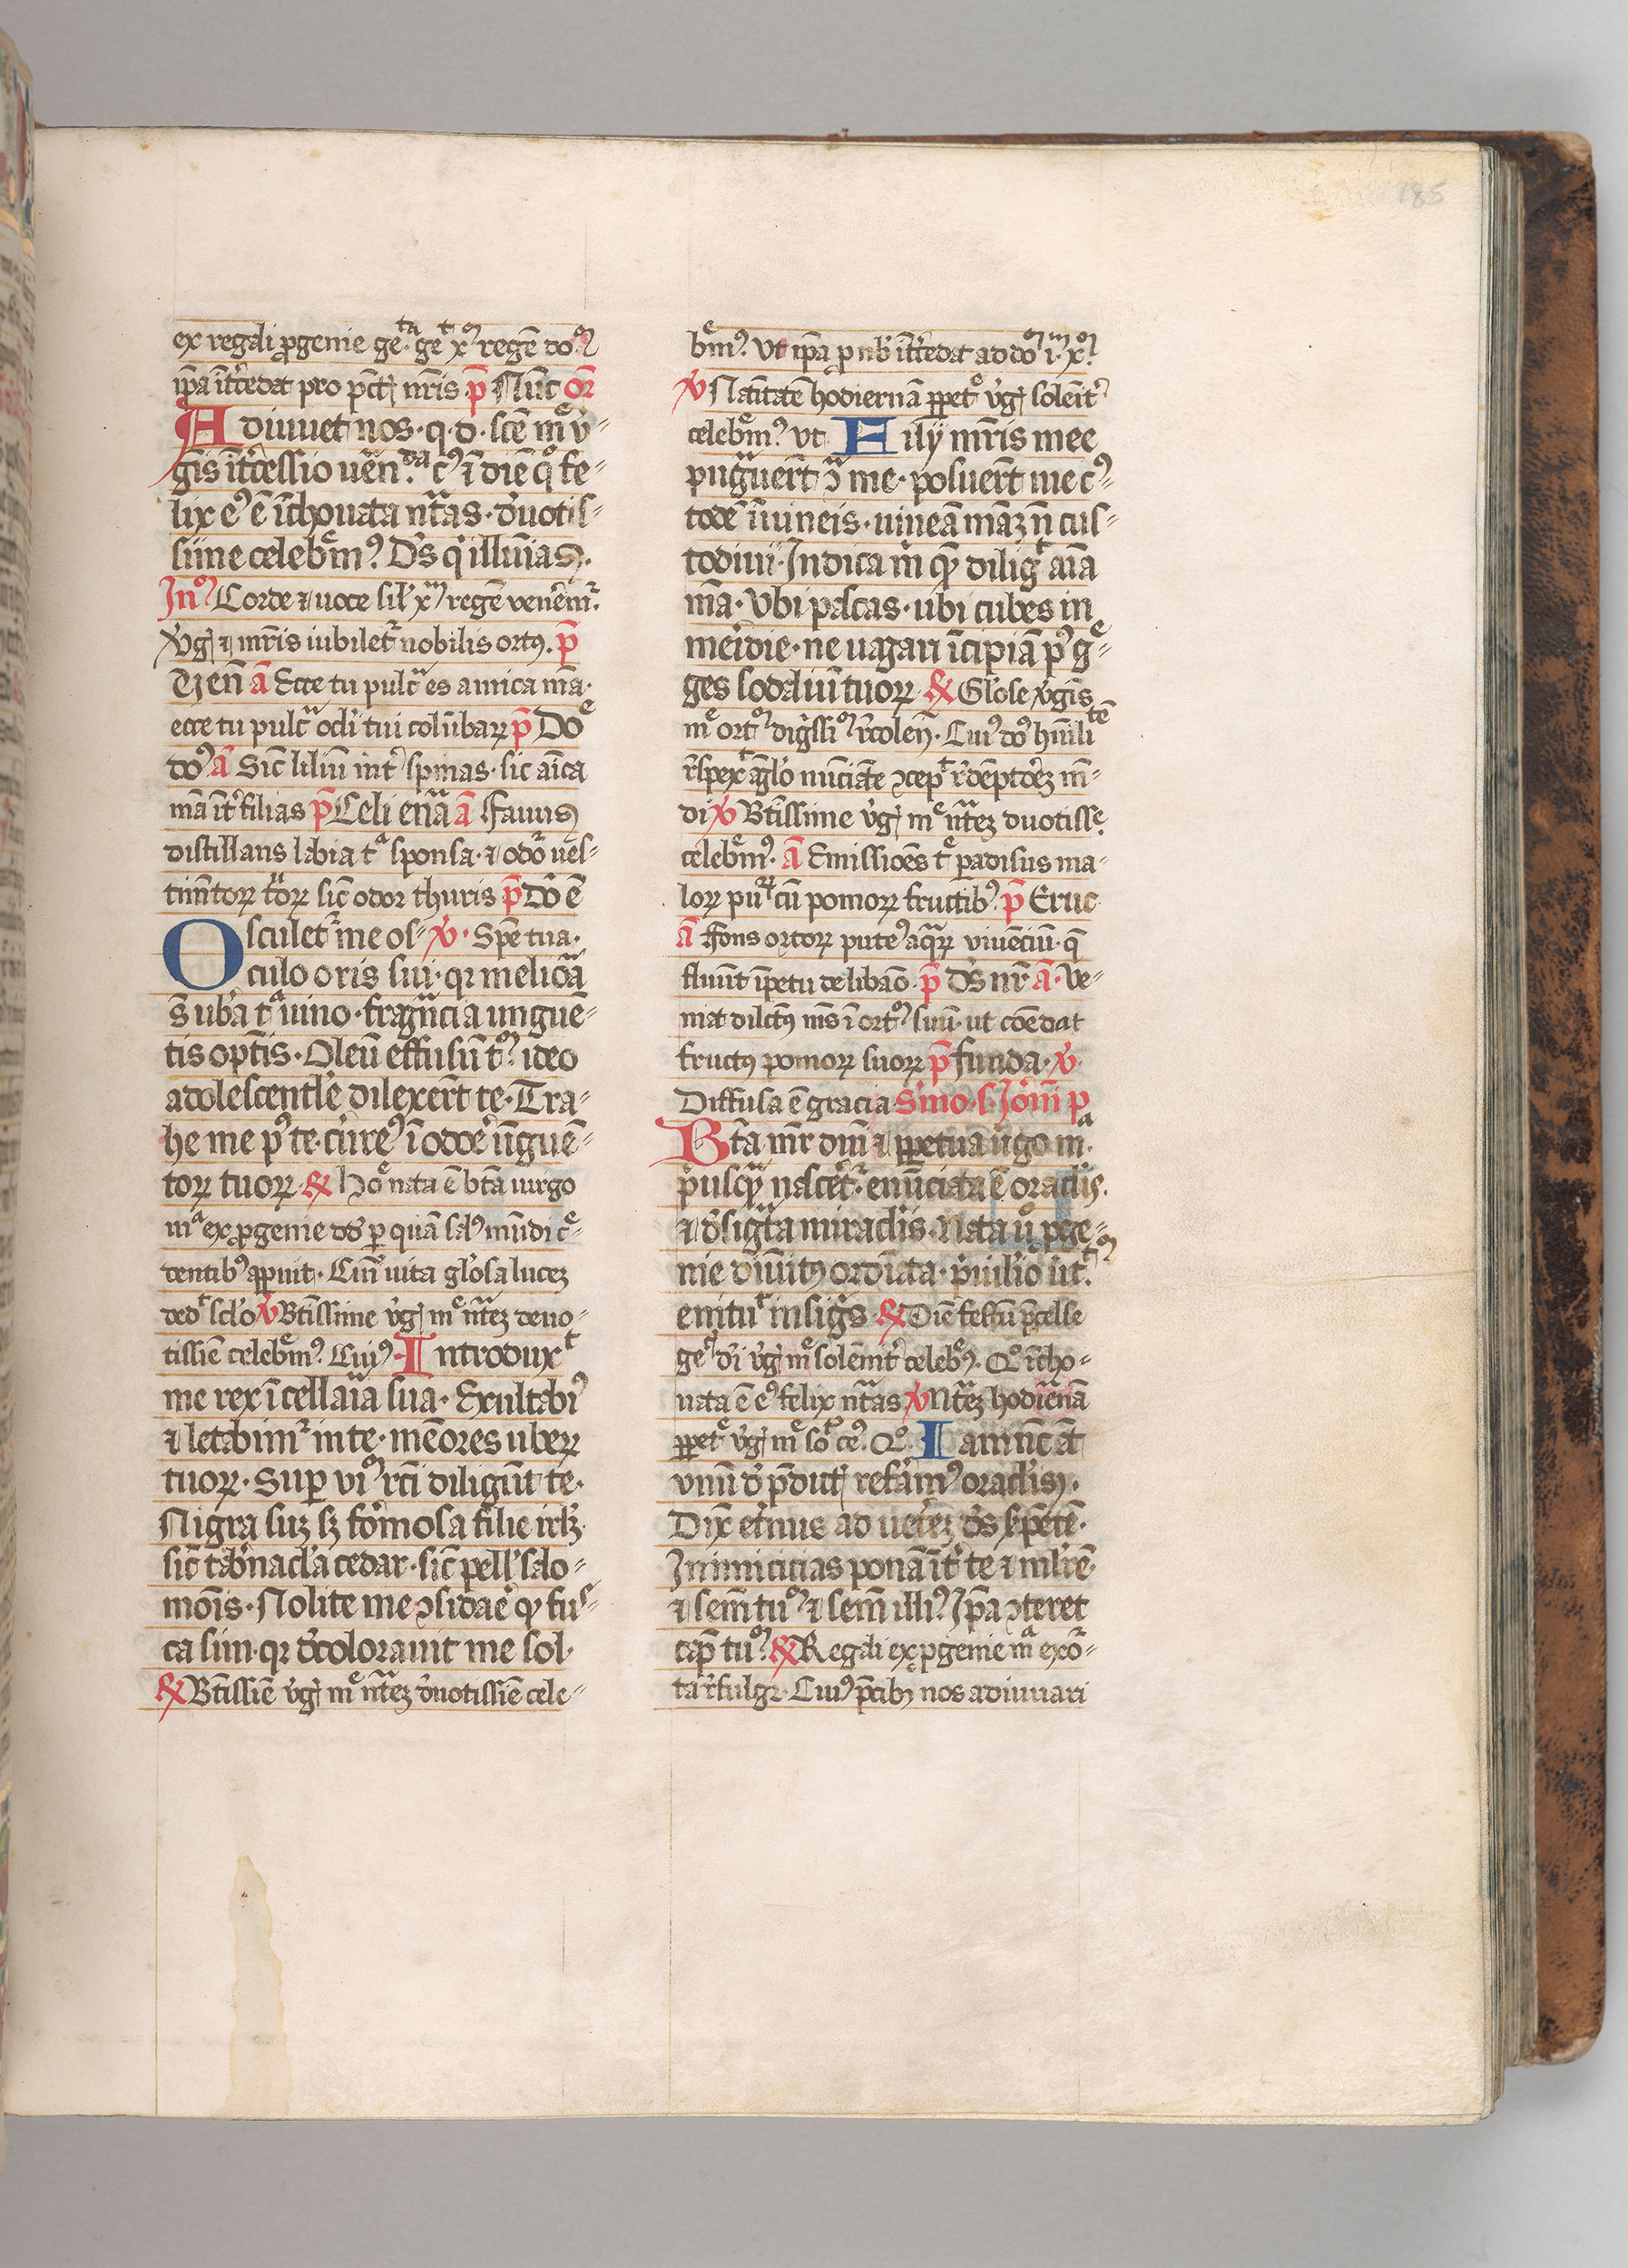 185
ex regali ꝓgenie ge.ta geᵗ xᵐ regē doᵐ
ip̄a īt͛cedat pro pct̄ nr̄is p̄ Nūc or̄
Adiuuet nos · q · d · scē mᵉ v͛
gīs īt͛cessio uen̄.da cꝰ ī diē qͦ fe
lix eꝰ ē īchouata nt̄as · d͛uotis
sīme celebᵉmꝰ D͛s qͥ illuīas
Inᵐ Corde ⁊ uoce sil͛ xᵐ regē ven͛emᷣ
V͛g ⁊ mr̄is iubiletᷣ nobilis ortꝰ · p̄
ā Ecce tu pulcᵃ es amica m̄a ·
ecce tu pulcᵃ oc͛li tui colūbaꝝ p̄ Doᵉ
doꝰ ā Sic̄ liliū int͛ spinas · sic aīca
m̄a īt͛ filias p̄ Celi enᵃ ā Fauus
distillans labia tᵃ sponsa · ⁊ odoᷣ ues
timt̄oꝝ t͛oꝝ sic̄ odor thuris p̄ Dō ē
Osculetᷣ me os v͛ · Spē tua ·
culo oris sui · qꝛ melioᵃ
s̄ ub͛a tᵃ uino · fragᵃncia unguē
tis opt̄is · Oleū effusū tᵐ ideo
adolescentl͛e dilexer̄t te · Tra
he me pꝰ te · c͛ureꝰ ī odoē ūguē
toꝝ tuoꝝ · ℟ Hoᵉ nata ē bt̄a uirgo
mᵃ ex ꝓgenie dd͛ ꝑ quā salꝰ mūdi cᵉ
dentibꝰ apꝑuit · Cuiꝰ uita gl͛osa lucez
dedᵗ sc͛lo v͛ Bt̄issime v͛g mᵉ nt̄ez deuo
tissiē celebᵉmꝰ Cuiꝰ · Introduxᵗ
me rex ī cellaia sua · Exultabiꝰ
⁊ letabimᷣ in te · mēores uberꝝ
tuoꝝ · Sup vīᵐ rc̄i diligūt te ·
Nigra suꝫ sꝫ fo͛mosa filie irlꝫ ·
sic̄ tab͛nacl͛a cedar · sic̄ pell͛ salo
mōis · Nolite me ꝯsid͛are qꝙ fus
ca sim · qꝛ d͛colorauit me sol ·
℟ Bt̄issiē v͛g mᵉ nt̄ez d͛uotissiē cele
bᵉmꝰ Ut ip̄a ꝓ nob͛ īt͛cedat ad doᵐ iᵐ xᵐ
v͛ Natītatē hodiernā ꝑpetᵉ v͛g solēit͛
celebᵉmꝰ vt Filij mr̄is mee
pugᵃuer̄t ꝯ me · posuer̄t me cꝰ
todē ī uineis · uineā meāꝫ n̄ cus
todiui · Indica m̄ qꝫ diligᵗ aīa
m̄a · Ubi pascas · ubi cubes in
meīdie · ne uagari īcipiā pꝰ gᵉ
ges sodaliū tuoꝝ ℟ Gl͛ose v͛gīs
mᵉ ortᵐ digͥssiᵐ r͛colen · Cuiꝰ doꝰ hūilitē
r͛spexᵗ āgl͛o nūciāte ꝯcepᵗ r͛dēptoꝫ mū
di v͛ Bt̄issime v͛g mᵉ nt̄ez d͛uotisse
celebᵉmꝰ · ā Emissioēs tᵉ padisus ma
loꝝ pūᷣ cū pomoꝝ fructibꝰ p̄ Eruc
ā Fons ortoꝝ puteꝰ aqᵃꝝ viuēciū · q̄
fluūt īpetu de libāo · p̄ D͛s nr̄ ā · Ve
niat dilctꝰ ms ī ortᵐ suū · ut coēdat
fructꝰ pomoꝝ suoꝝ p̄ Funda · v͛
Diffusa ē gracia s͛mo · s · Ioh̄īs p
Bt̄a mr̄ dn̄i ⁊ ꝑpetua ūgo mᵃ
pͥusqᵃ nascētᷣ · enūciata ē oracl͛is ·
⁊ d͛sigᵃta miracl͛is · Nata uͦ ꝓge
nie diuītꝰ ordīata · pͥuil͛ioᵐ ūtᵗ
enituᵗ insigͥs ℟ Diē festū p̄celse
geᵉ di v͛g mᵉ solēnit͛ celebᵉꝰ · Qͦ īcho
uata ē eꝰ felix nt̄as v͛ Nt̄ez hodienā
ꝑpetᵉ v͛g mᵉ soᵗ ceꝰ · Qͦ · Iā nūc āt
vnū d͛ p̄dict refamꝰ oracl͛is ·
Dix̄ et͛nus ad uet͛ez d͛s s͛pētē ·
Inimicicias ponā īt͛ te ⁊ ml͛iē ·
⁊ sem̄ tuᵐ ⁊ sem̄ illiꝰ Ip̄a ꝯteret
cap̄ tuᵐ ℟ Regali ex ꝓgenie mᵃ exoᷣ
ta r͛fulgꝫ · Cuiꝰ p̄cibꝫ nos adiuuari